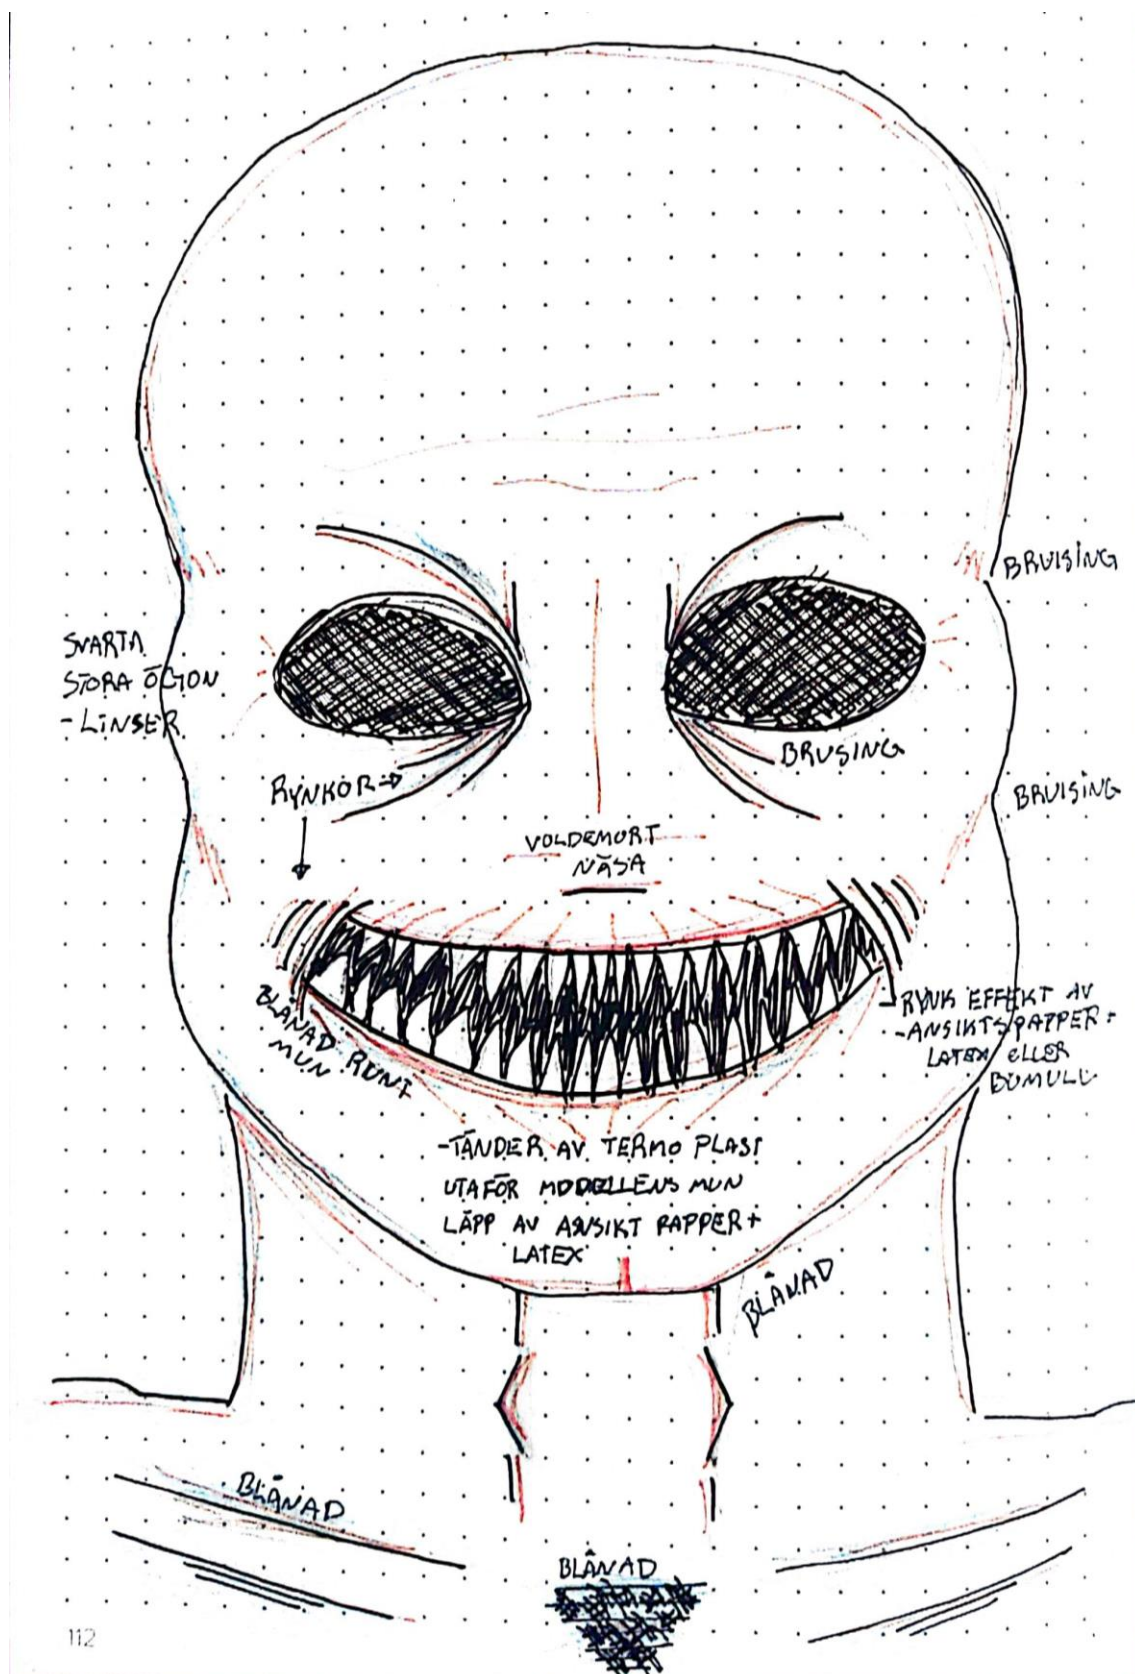 BRUISING
SVARTA
STORA ÖGON
- LINSER
BRUSING
RYNKOR →
BRUISING
VOLDEMORT
NÄSA
BLÅNAD RUNT
MUN
RYNK EFFEKT AV
- ANSIKTSPAPPER +
LATEX ELLER
BOMULL
- TÄNDER AV TERMO PLAST
UTAFÖR MODELLENS MUN
LÄPP AV ANSIKT PAPPER +
LATEX
BLÅNAD
BLÅNAD
BLÅNAD
112